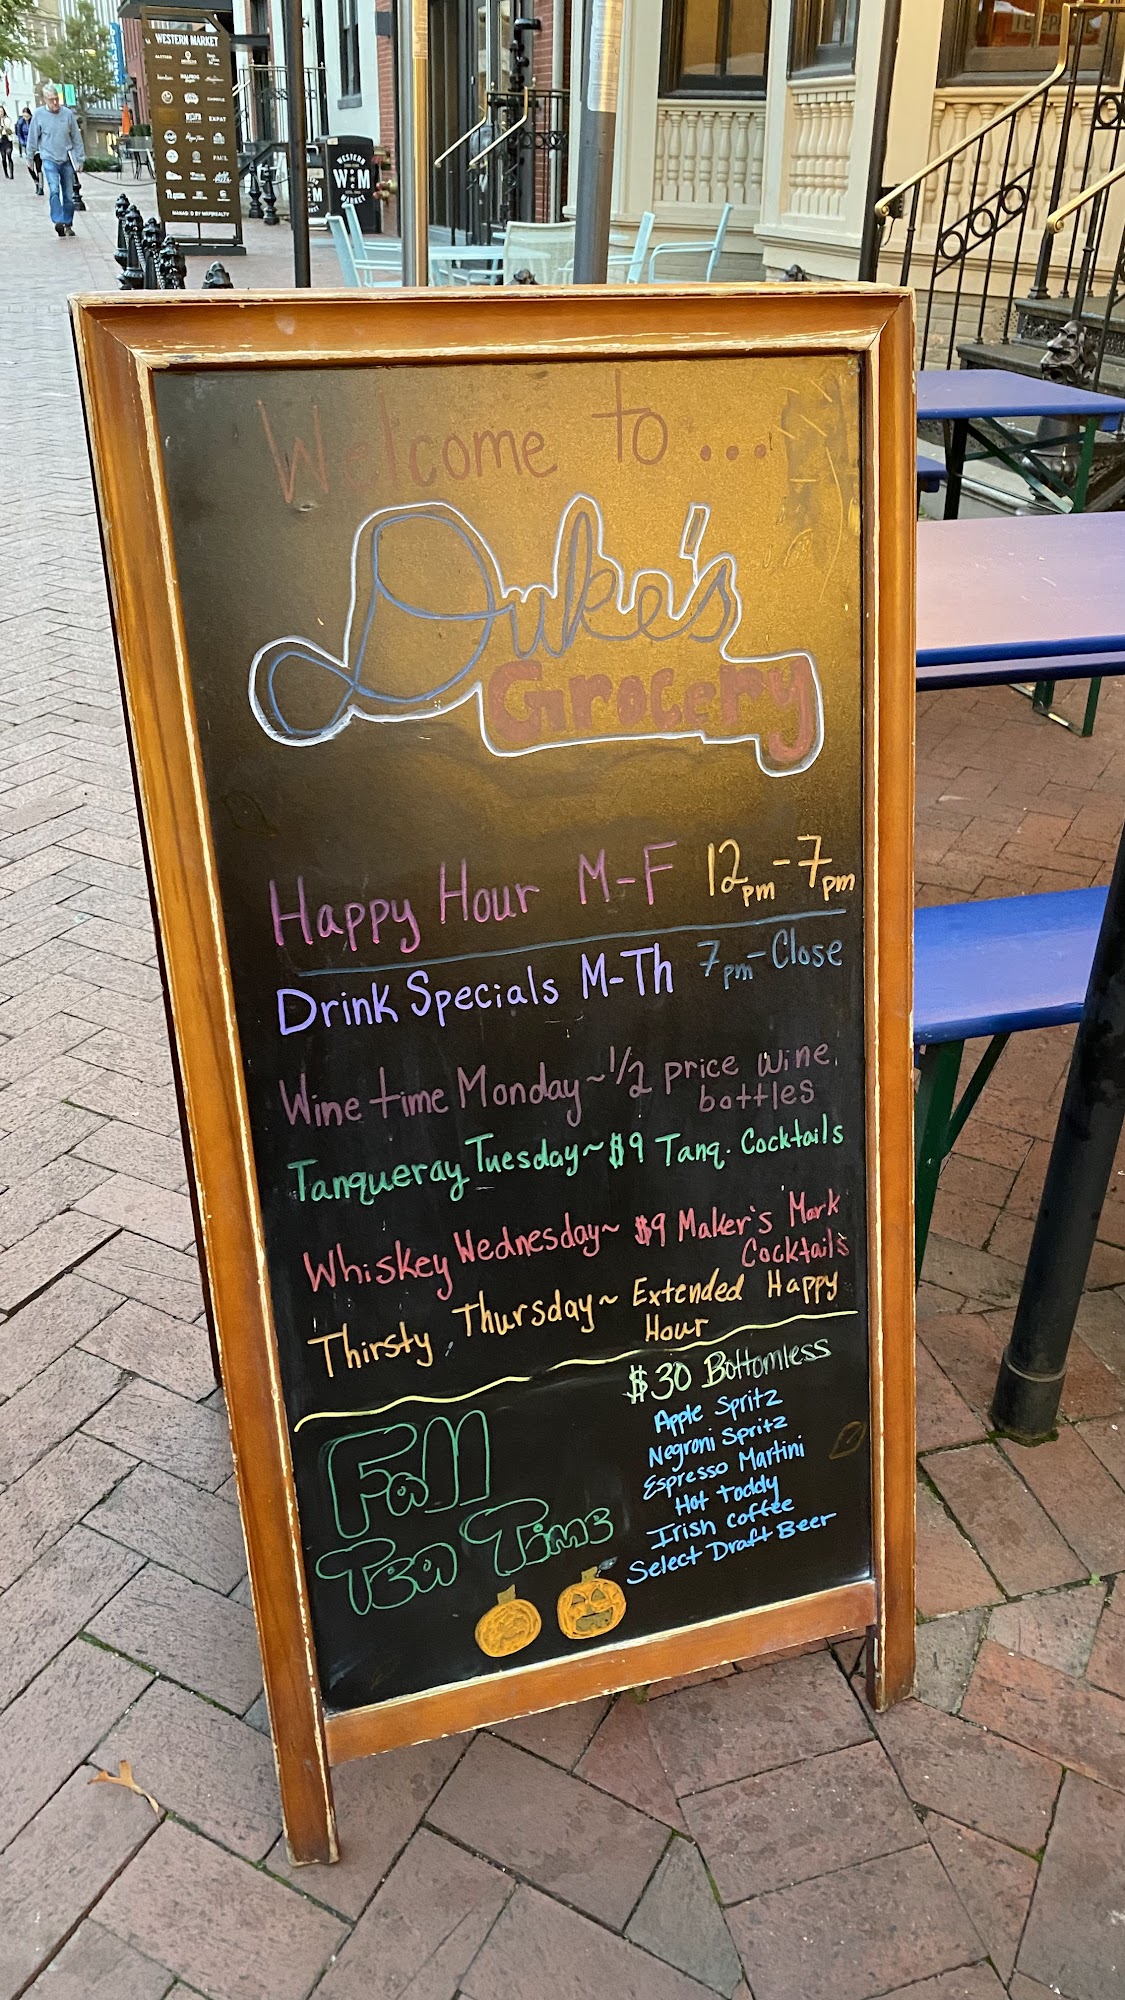 WESTERN MARKET
PAUL
EXPAT
WESTERN
W M
MARKET
Welcome to ...
Duke's
Grocery
Happy Hour M-F 12pm-7pm
Drink Specials M-Th 7pm-Close
Wine time Monday~1/2 price wine
bottles
Tanqueray Tuesday~$9 Tanq. Cocktails
Whiskey Wednesday~ $9 Maker's Mark
Cocktails
Thirsty Thursday~ Extended Happy
Hour
$30 Bottomless
Apple Spritz
Negroni Spritz
Espresso Martini
Hot Toddy
Irish Coffee
Select Draft Beer
Fall
Tea Time